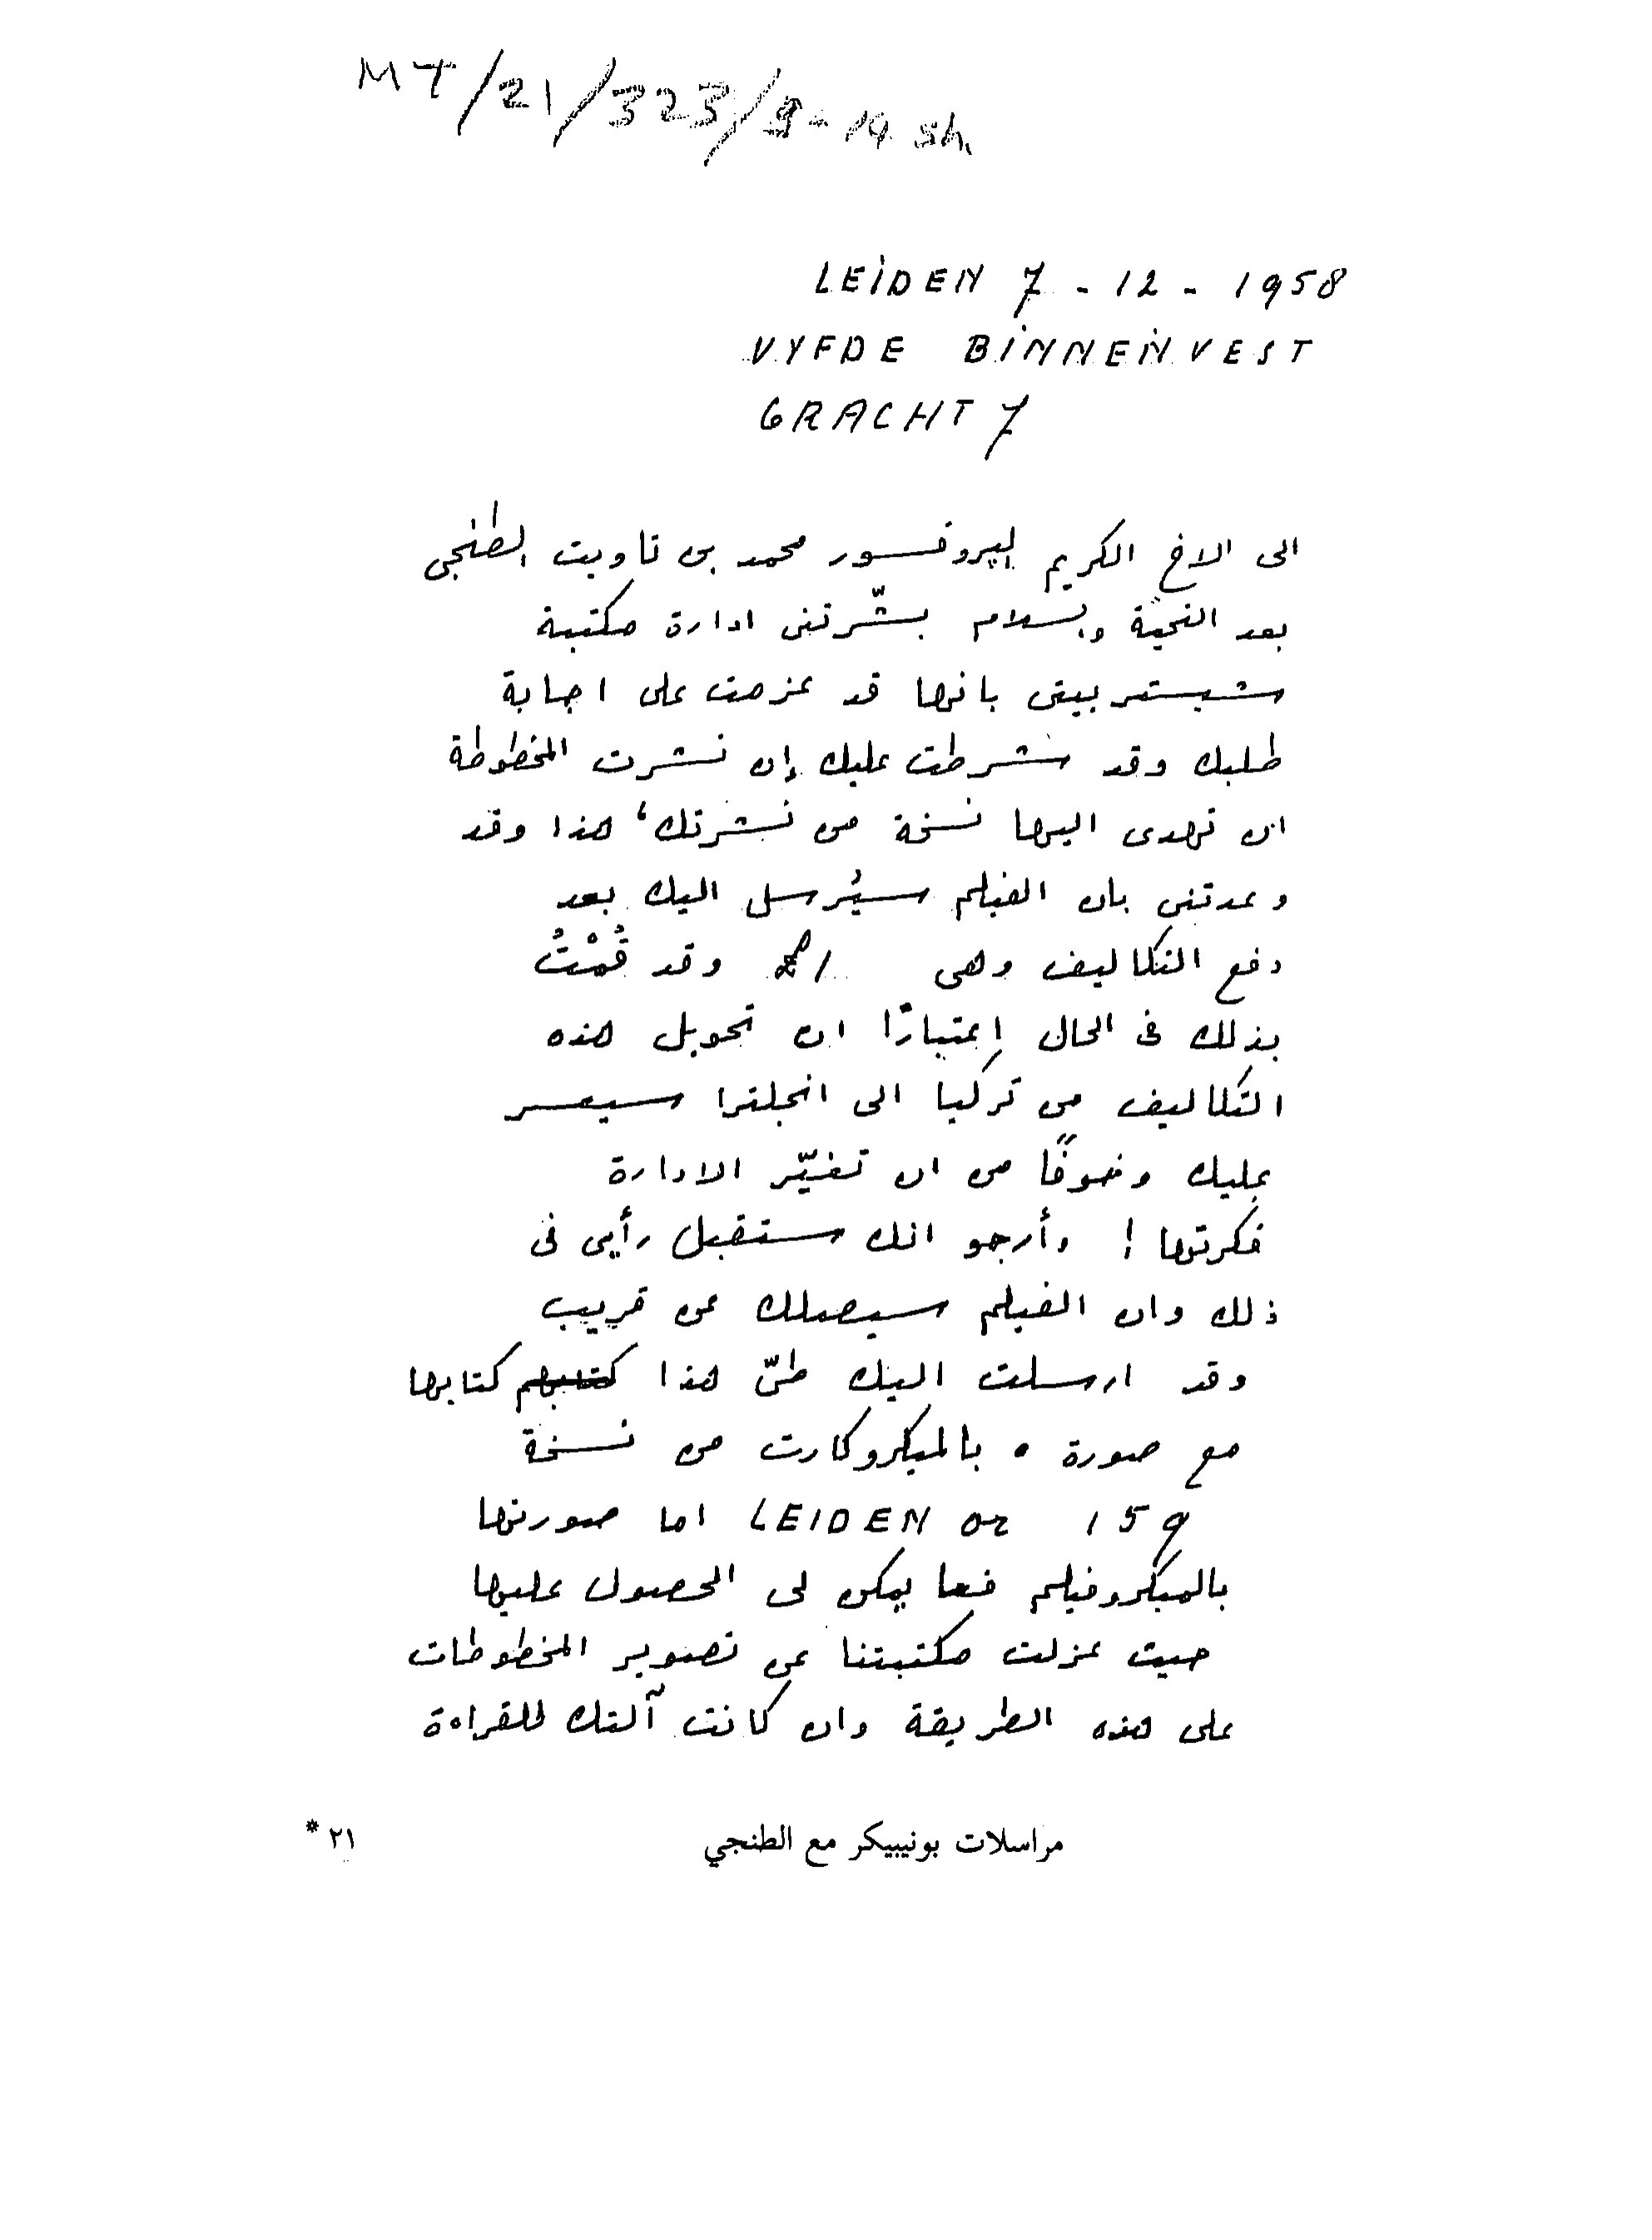 MT/21/323/9-14 sh.
LEIDEN 7 - 12 - 1958
VYFDE BINNENVEST
GRACHT 7
الى الاخ الكريم الپروفسور محمد بن تاويت الطنجى
بعد التحيّة والسلام بشّرتنى ادارة مكتبة
شبستر بيتى بانها قد عزمت على اجابة
طلبك وقد شرطت عليك إن نشرت المخطوطة
ان تهدى اليها نسخة من نشرتك، هذا وقد
وعدتنى بان الفيلم سيُرسل اليك بعد
دفع التكاليف وهى 1 £ وقد قُمْتُ
بذلك فى الحال إعتبارًا ان تحويل هذه
التكاليف من تركيا الى انجلترا سيعسر
عليك وخوفًا من ان تغيّر الادارة
فكرتها ! وأرجو انك ستقبل رأيى فى
ذلك وان الفيلم سيصلك عن قريب
وقد ارسلت اليك طىّ هذا كتابهم كتابها
مع صورة بالميكروكارت من نسخة
LEIDEN or 159 اما صورتها
بالميكروفيلم فما يمكن لى الحصول عليها
حيث عزلت مكتبتنا عن تصوير المخطوطات
على هذه الطريقة وان كانت آلتك للقراءة
مراسلات بونيبيكر مع الطنجي
٢١ *